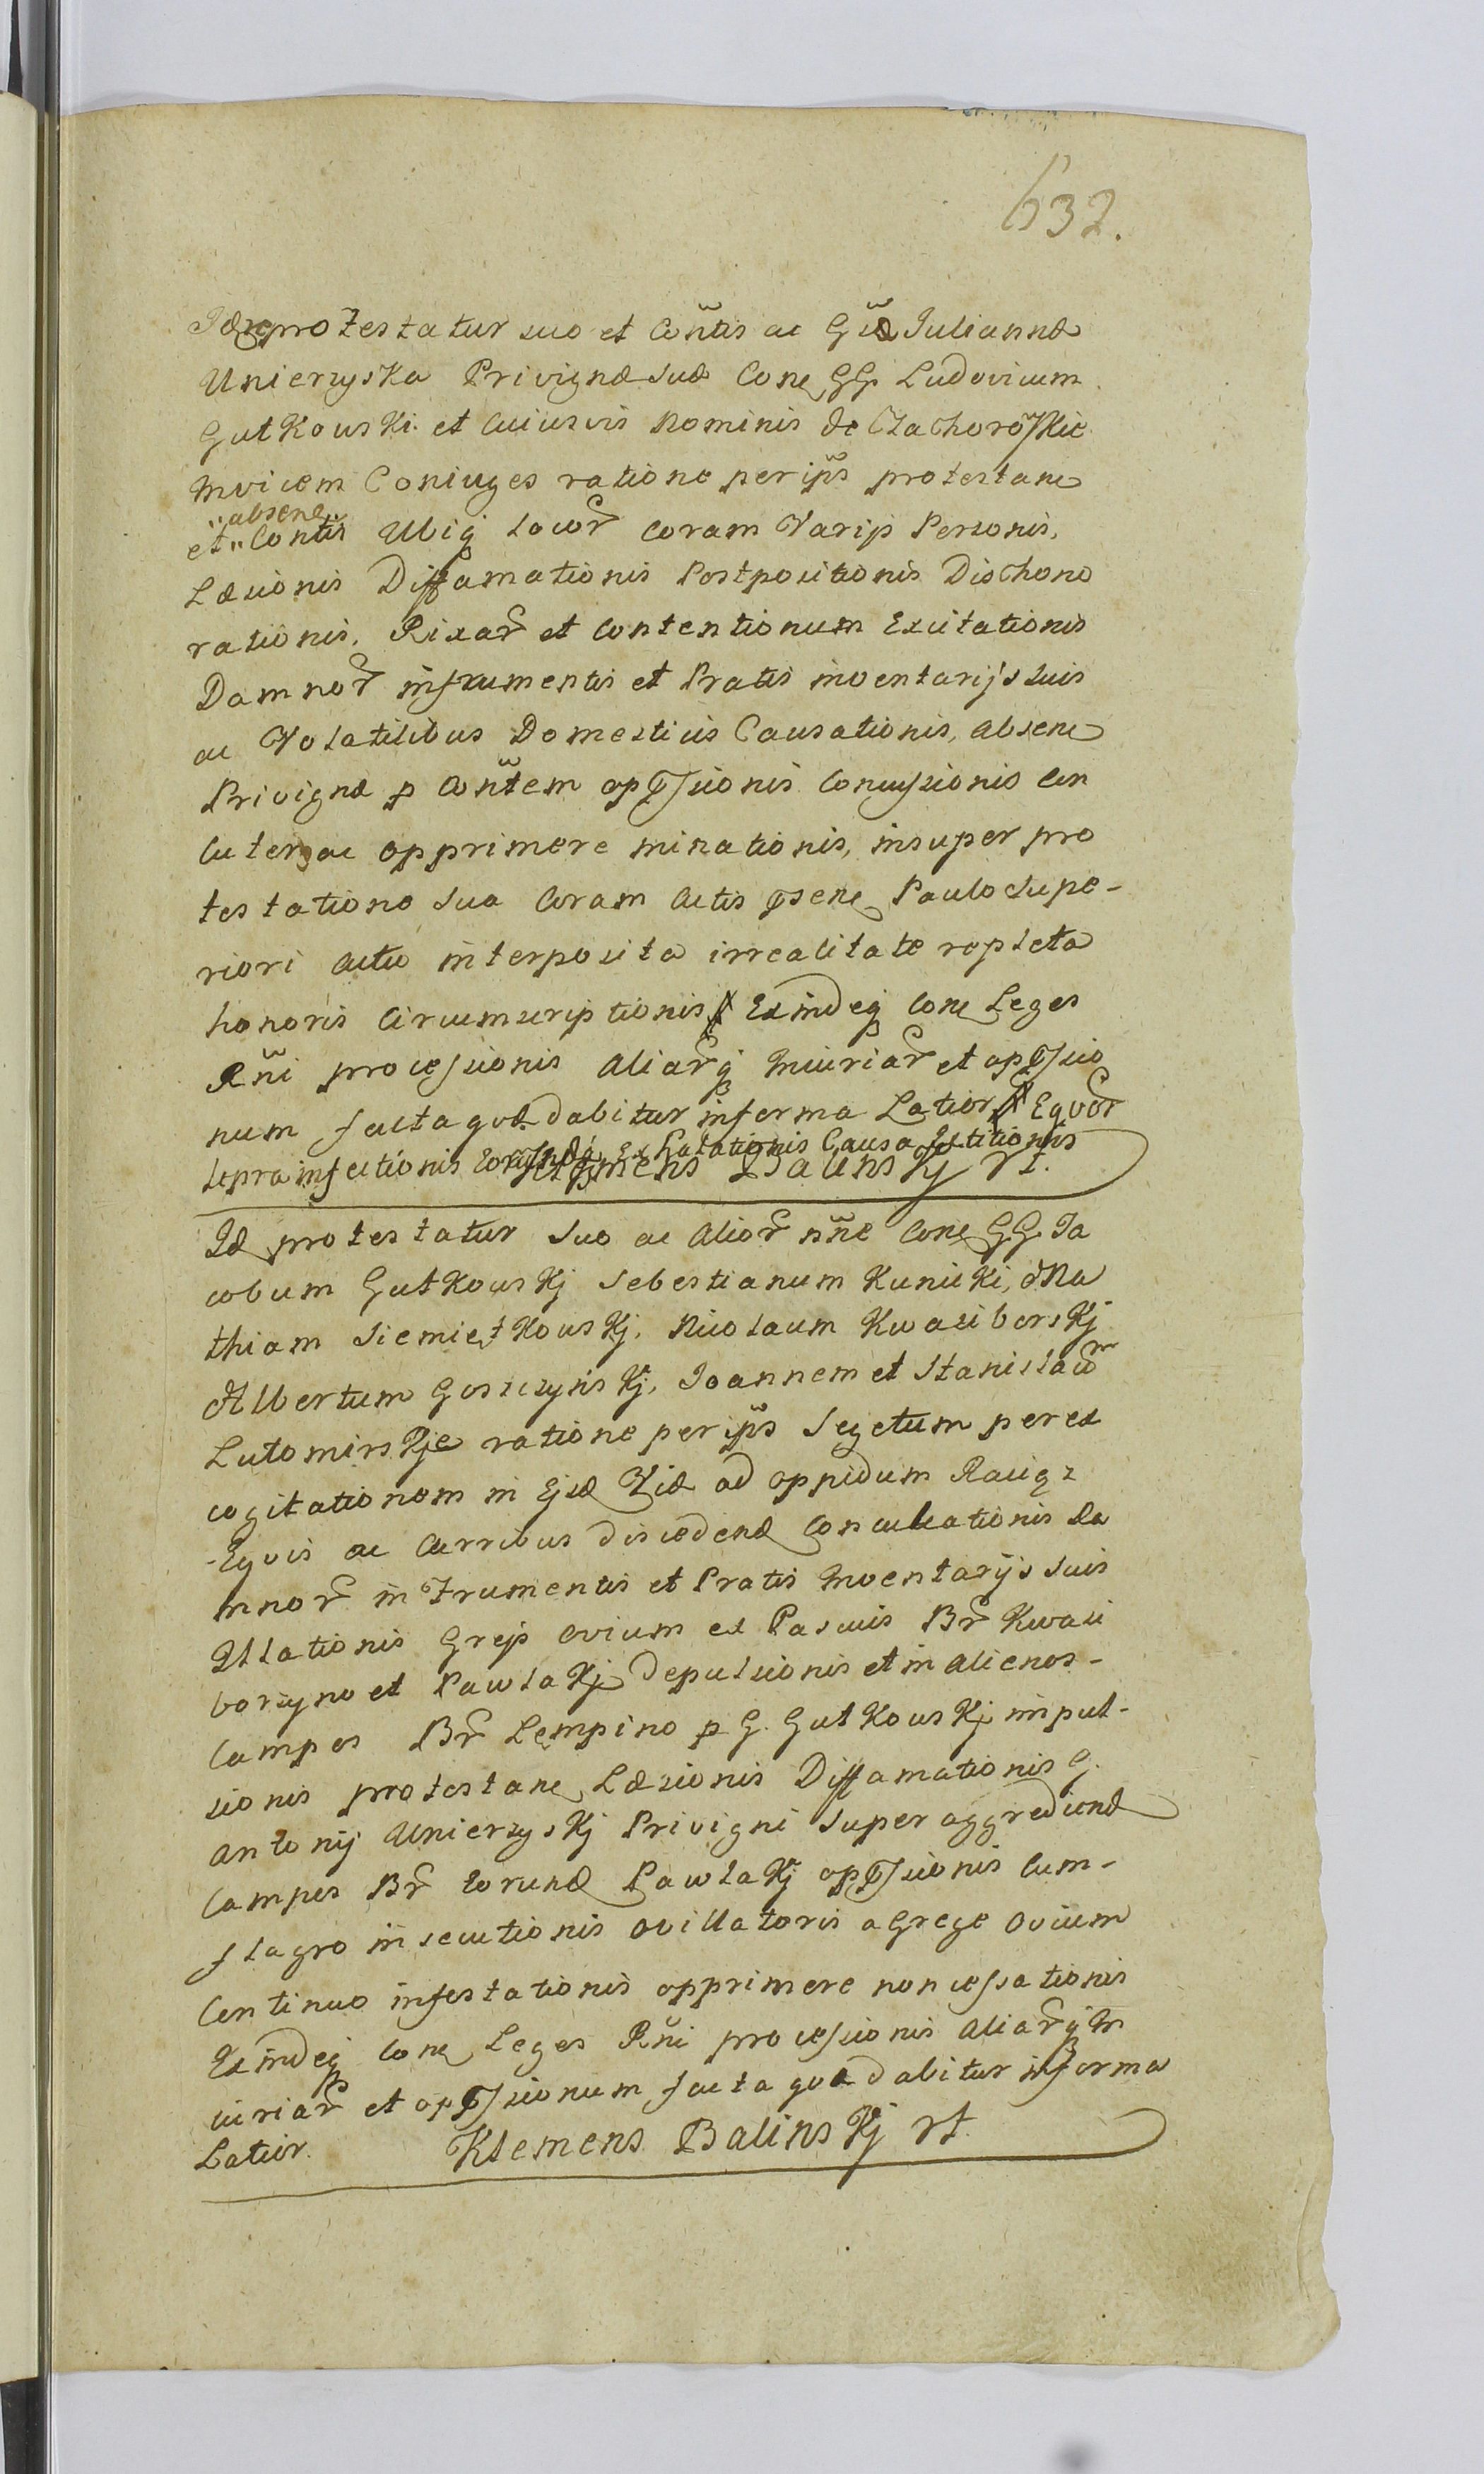 632.
Idē protestatur suo et Cōntis ac Gñæ Juliannæ
Unierzyska Privignæ suæ Conc GG. Ludovicum
Gutkowski et Cuiusvis Nominis de Czachorōskie
invicem Coniuges ratione per ip̃s protestanc
„absenc„
et „ Contis Ubiq̨ locor̃ coram Varijs Personis,
Læsionis Diffamationis Postpositionis Dishono
rationis, Rixar̃ et Contentionum Excitationis
Damnor̃ in frumentis et Pratis inventarijs suis
ac Volatilibus Domesticis Causationis, absenc
Privignæ p Cōntem opp̃ssionis Concussionis Con
cutere ac opprimere minationis, insuper pro
testatione sua Coram Actis p̃senc Paulo supe-
riori actu interposita irrealitate repleta
honoris Circumscriptionis # Exindeq̨ Conc Leges
Rñi processionis Aliar̃q̨ Iniuriar̃ et opp̃ssio
num facta quæ dabitur in forma Latior # Equor̃
lepra infectionis Ex Satationis Causa
Klemens Balinskj rt.
Id protestatur suo ac Alior̃ nñe Conc GG. Ja
cobum Gutkowskj Sebestianum Kunicki, Ma
thiam Siemiętkowskj, Nicolaum Kwasiborskj
Albertum Goszczynskj, Joannem et Stanislaũ
Lutomirskje ratione per ip̃s Segetum per ex
cogitationem in Ejsd Viæ ad oppidum Raciąz
Equis ac Curribus discedend Conculcationis Da
mnor̃ in Frumentis et Pratis Inventarijs suis
Illationis Gregis ovium ex Pascuis Br̃ Kwasi
borzyno et Pawlakj depulsionis et in alienos-
Campos Br̃ Lempino p G. Gutkowskj impul-
sionis protestanc Læsionis Diffamationis G.
Antonij Unierzyskj Privigni super aggrediend
Campos Br̃ Eorund Pawlakj opp̃ssionis Cum-
flagro insecutionis ovillatoris a Grege ovium
Continuo infestationis opprimere non cessationis
Exindeq̨ Conc Leges Rñi processionis Aliar̃q̨ In
iuriar̃ et opp̃ssionum facta quæ dabitur in forma
Latior. Klemens Balinskj rt.